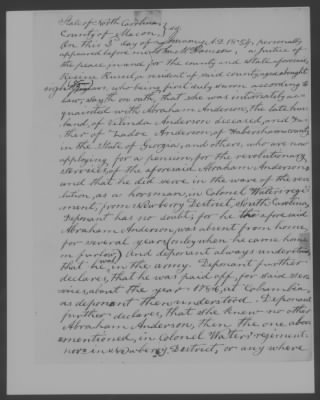 State of North Carolina
County of Macon
On this 3d day of January A.D. 1854, personally
appeared before me a Justice of
the peace, in and for the county and State aforesaid,
Russell, a resident of said county, aged about
years, who being first duly sworn according to
law, sayth on oath, that she was intimately ac-
quainted with Abraham Anderson, the late hus-
band, of Anderson deceased, and Fa-
ther of Anderson, of Habersham county
in the State of Georgia, and others, who are now
applying for a pension, for the revolutionary
services, of the aforesaid Abraham Anderson,
and that he did serve in the ware of the revo-
lution, as a horsman, in Colonel Waters regi-
ment, from Newberry Destrict, South Carolina,
Deponant has no doubt, for he the aforesaid
Abraham Anderson, was absent from home,
for several years (only when he came home
on furlow,) And deponant always understood,
that he was in the army. Deponant further
declares, that he was paid off, for said ser-
vices, about the year at Columbia,
as deponant then understood. Deponant
further declares, that she knew no other
Abraham Anderson, then the one above
mentioned, in Colonel Waters regiment.
nor in Newberry Destrict, or any where